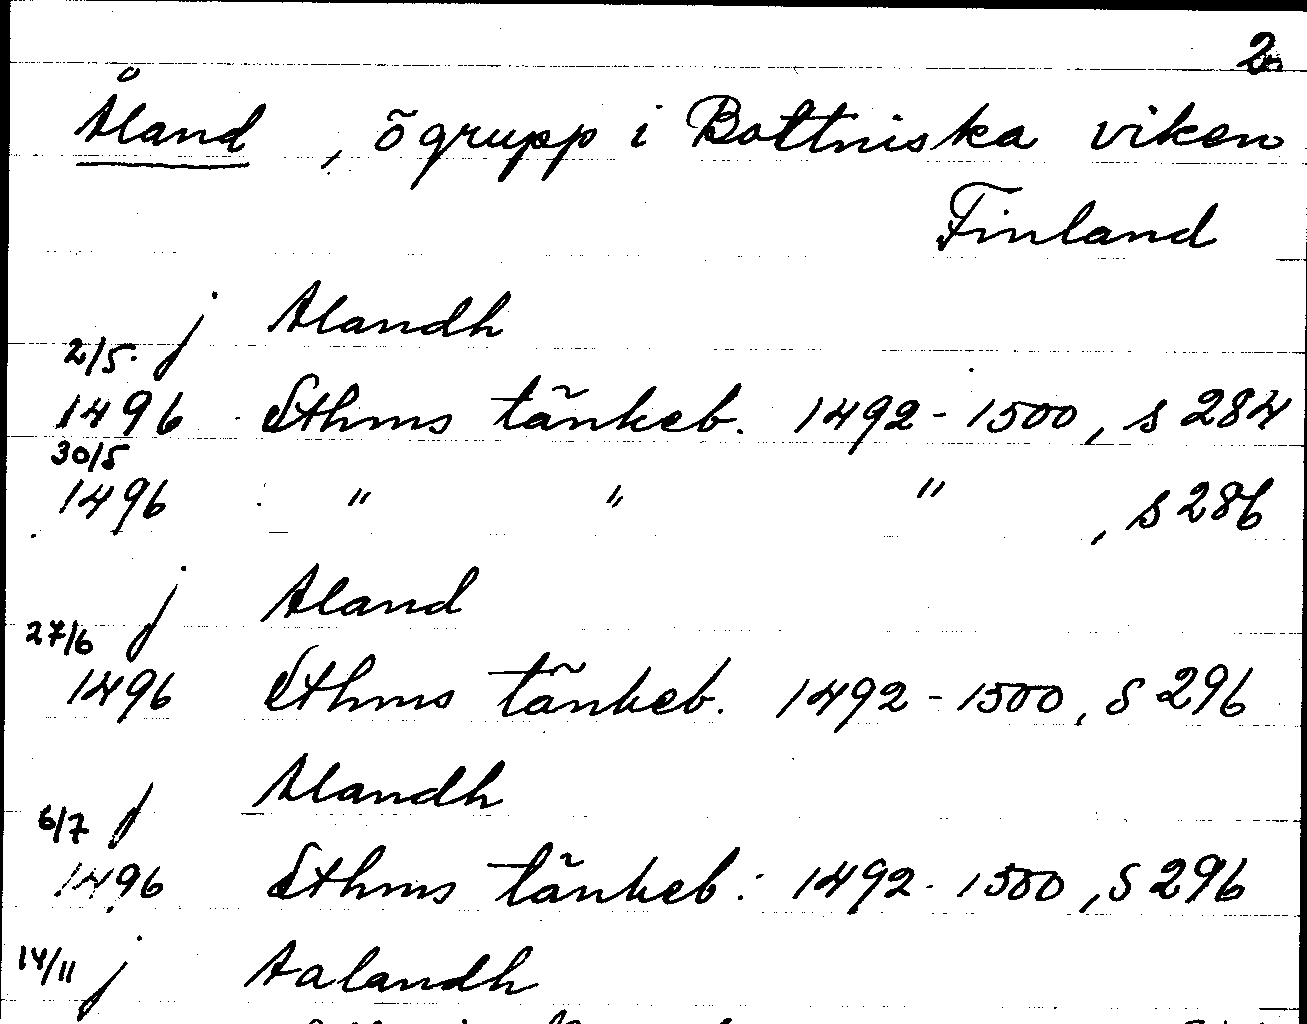 2
Åland, ögrupp i Bottniska viken
Finland
j Alandh
2/5
1496 Sthms tänkeb. 1492-1500, s 284
30/5
1496 " " " , s 286
j Aland
27/6
1496 Sthms tänkeb. 1492-1500, s 296
j Alandh
6/7
1496 Sthms tänkeb. 1492-1500, s 296
14/11 j Aalandh